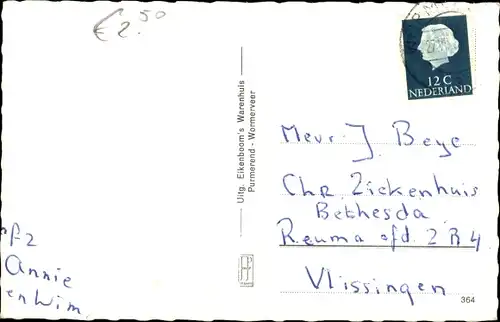 € 2.50
12 C
NEDERLAND
Uitg. Eikenboom's Warenhuis
Purmerend - Wormerveer
Mevr. J. Beye
Chr. Ziekenhuis
Bethesda
Reuma afd. 2 B 4
Vlissingen
Annie
en Wim
364